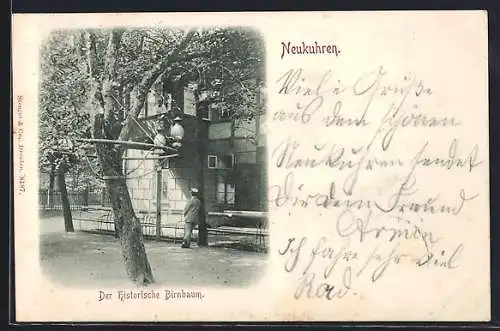 Neukuhren.
Viele Grüße
aus dem schönen
Neukuhren sendet
Dir dein Freund
Armin
Ich fahre sehr viel
Rad.
Der historische Birnbaum.
Stengel & Co., Dresden. 8487.